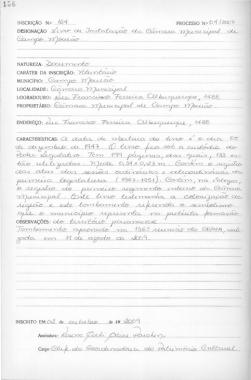 156
INSCRIÇÃO Nº 164 PROCESSO Nº 01/2009
DESIGNAÇÃO Livro de Instalação da Câmara Municipal de
Campo Mourão
NATUREZA Documento
CARÁTER DA INSCRIÇÃO Voluntário
MUNICÍPIO: Campo Mourão
LOCALIDADE: Câmara Municipal
LOGRADOURO: Rua Francisco Ferreira Albuquerque, 1488
PROPRIETÁRIO: Câmara Municipal de Campo Mourão
ENDEREÇO: Rua Francisco Ferreira Albuquerque, 1488
CARACTERÍSTICAS: A data de abertura do livro é o dia 5
de dezembro de 1947. O livro fica sob a custódia do
Poder Legislativo. Tem páginas, das quais,
estão utilizadas. Mede. Contém o registro
das atas das sessões ordinárias e extraordinárias da
primeira legislatura (1947-1951). Contém,
o registro do primeiro regimento interno da Câmara
Municipal. Este livro testemunha a colonização da
região e este tombamento referenda o simbolismo
que o município representa na
OBSERVAÇÕES: do território paranaense.
Tombamento aprovado na reunião do CEPHA,
em de agosto de 2009.
INSCRITO EM 02 de outubro de 2009
Assinatura:
Cargo: Chefe da Coordenadoria do Patrimônio Cultural